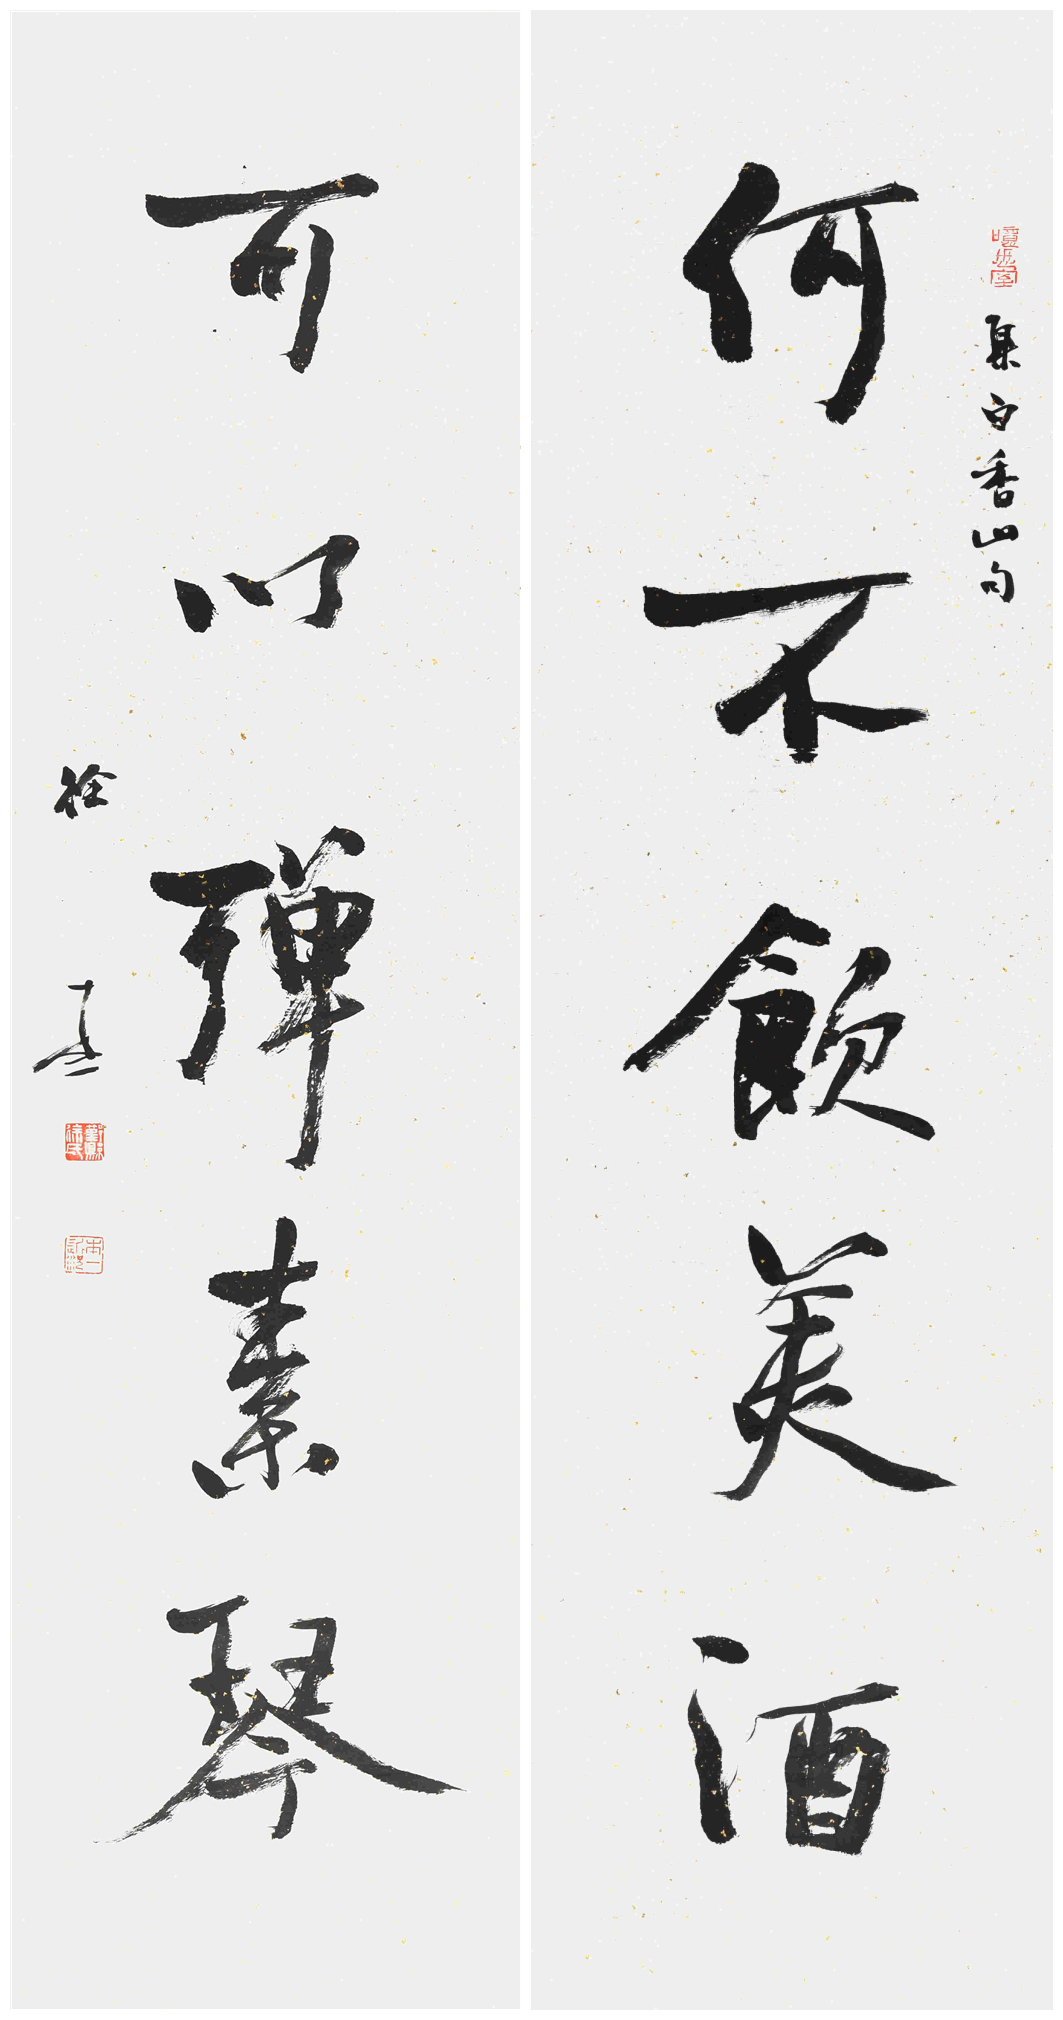 集白香山句
何不飲美酒
可以彈素琴
徐